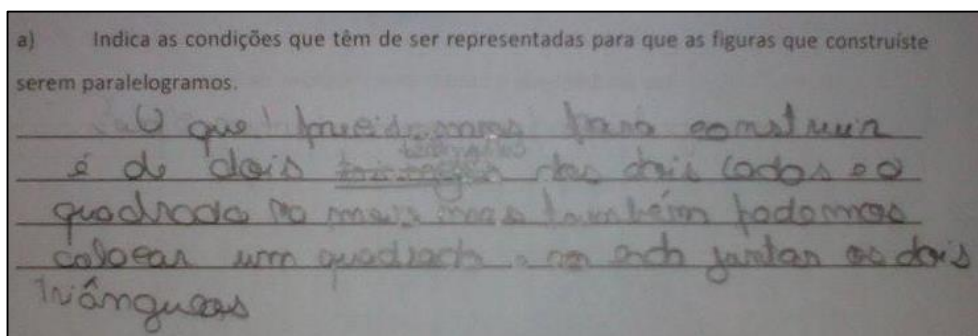 a) Indica as condições que têm de ser representadas para que as figuras que construíste
serem paralelogramos.
O que precisamos para construir
é de dois triangulos dos dois lados e o
quadrado no meio mas também podemos
colocar um quadrado e ao juntar os dois
Triângulos